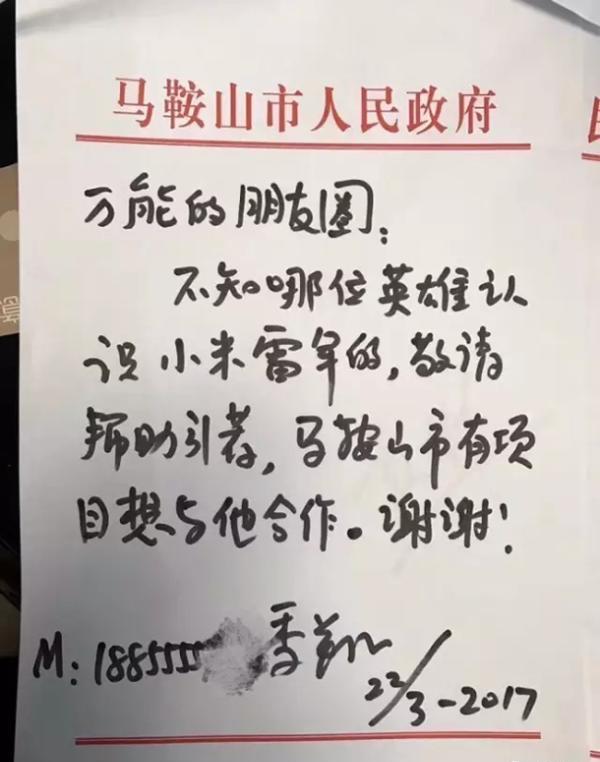 马鞍山市人民政府
万能的朋友圈:
不知哪位英雄认
识小米雷军的,敬请
帮助引荐,马鞍山市有项
目想与他合作。谢谢!
M:1885555
季翔
22/3-2017